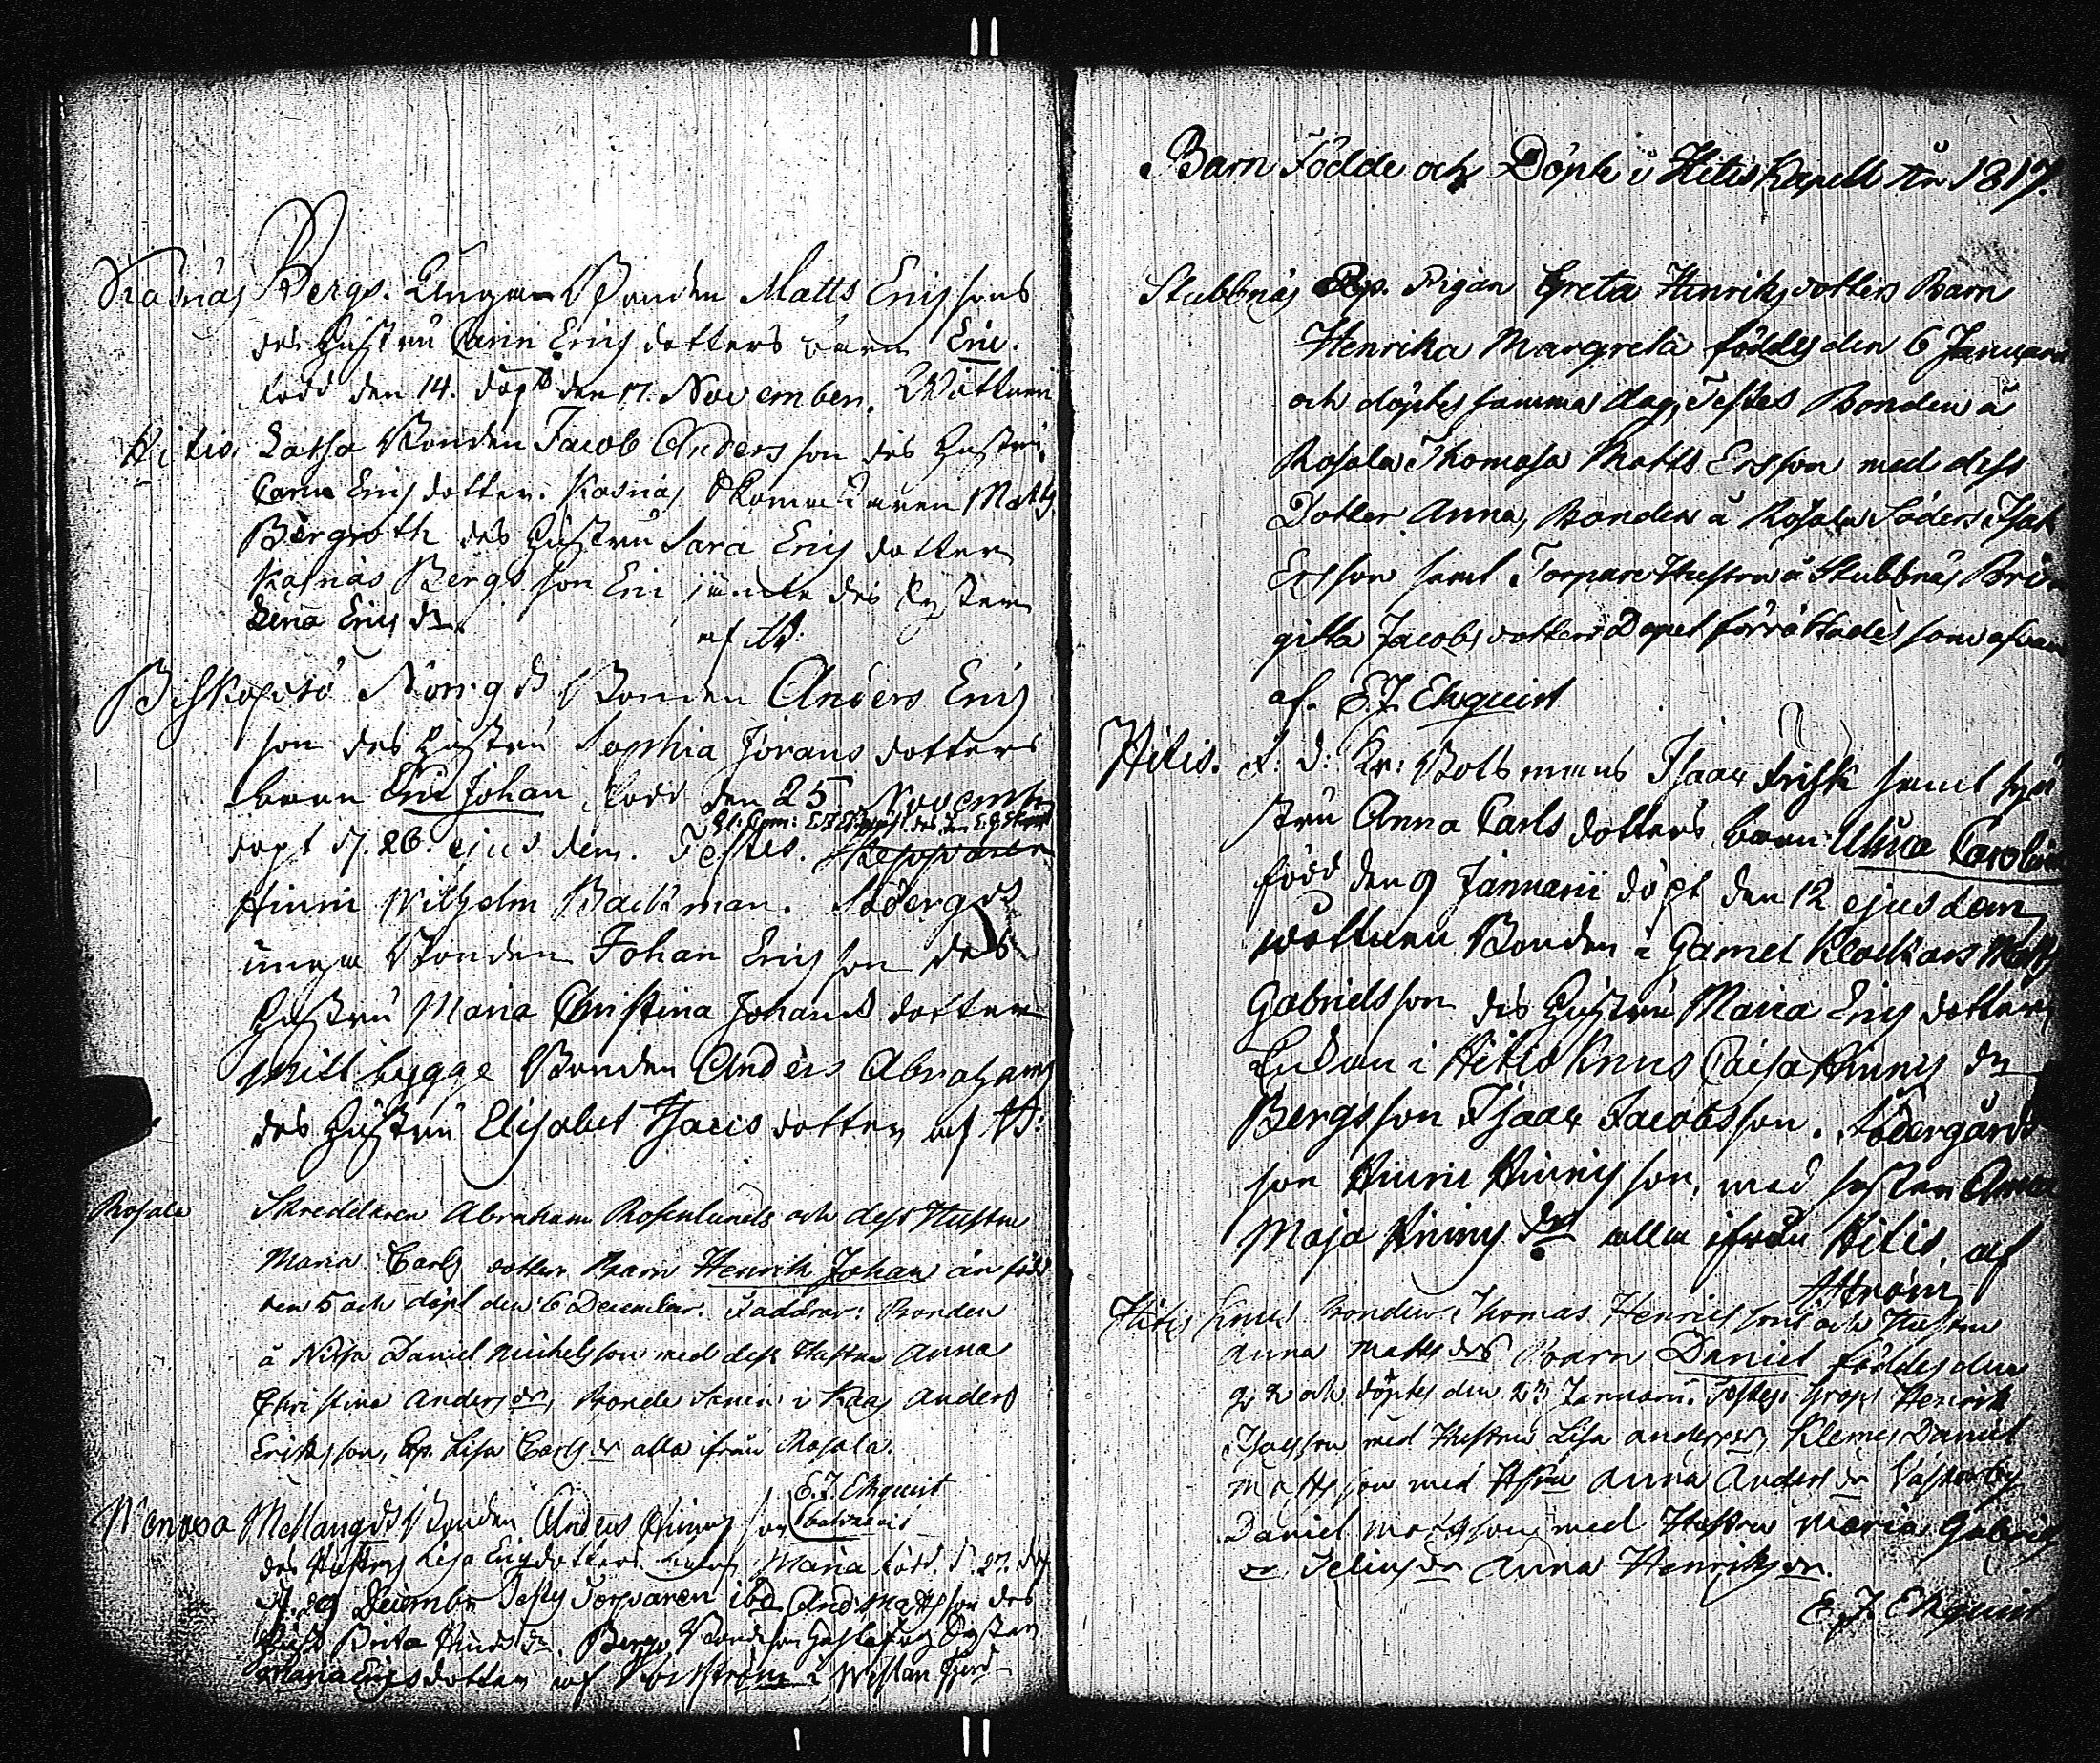 Kasnäs Bergs. Bonden Matts Ericssons
des Hustru Carin Ericsdotters barn Eric.
född den 14. döpt den 17. November. Wittnen
Hitis. Bonden Jacob Andersson des Hustru
Carin Ericsdotter. Kasnäs Matts
Bergroth des Hustru Sara Ericsdotter
Kasnäs Bergs son Eric jämte des Syster
Lena Erics dr.
af
Biskopsö Norrgds Bonden Anders Erics
son des Hustru Sophia Jörans dotters
barn Eric Johan född den 25 November
döpt d. 26. ejusdem. Testes.
Hinric Wilhelm Backman. Södergds
unga Bonden Johan Ericsson des
Hustru Maria Christina Johans dotter
Bonden Anders Abrahams
des Hustru Elisabet Isacs dotter af
Rosala Skreddaren Abraham Rosenlunds och dess Hustru
Maria Carls dotter Barn Henrik Johan är född
den 5 och döpt den 6 December. Faddrar: Bonden
å Nissa Daniel Michelsson med dess Hustru Anna
Christina Anders dr, Bonde Sonen i Anders
Eriksson, Lisa Carls dr alla ifrån Rosala.
E. J. Ekquist
Wänoxa Mellangds Bonden Anders Hinrics son
des Hustrus Lisa Ericsdotters barn Maria född. d. 27. döpt
d. 29 December Testes Torparen ibd And: Mattsson des
Hust. Brita Hinrics dr. Bergs Syster
Maria Ericsdotter af i Westan fjerd
Barn Födde och Döpte i Hitis Kapell År 1817.
Stubbnäs Pigan Greta Henriksdotters Barn
Henrika Margreta föddes den 6 Januarii
och döptes samma dag, Testes Bonden å
Rosala Thomasa Matts Ersson med dess
Dotter Anna, Bonden å Rosala Söders Isak
Ersson samt Torpare Hustrun å Stubbnäs Bri
gitta Jacobsdotter Dopet förrättades som ofvan
af. E. J. Ekquist
Hitis. f: d: Kr: Botsmans Isaac Frisk samt hu
stru Anna Carls dotters barn Ulrica Carolina
född den 9 Januarii döpt den 12 ejusdem
wittnen Bonden i Gamel Klockars Matts
Gabrielsson des Hustru Maria Erics dotter
Enkan i Hitis Knus Caisa Hinrics dr
Bergsson Isaac Jacobsson. Södergårds
son Hinric Hinricsson, med syster Anna
Maja Hinrics dr alla ifrån Hitis af
Hitis Knus Bonden Thomas Henricssons och Hustru
Anna Matts drs Barn Daniel föddes den
22 och döptes den 27 Januarii. Testes: Henrik
Isacsson med Hustru Lisa Anders dr, Klemes Daniel
Mattsson med Hstru Anna Anders dr
Daniel Mattsson med Hustru Maria Gabriels
dr Anna Henriks dr.
E. J. Ekquist